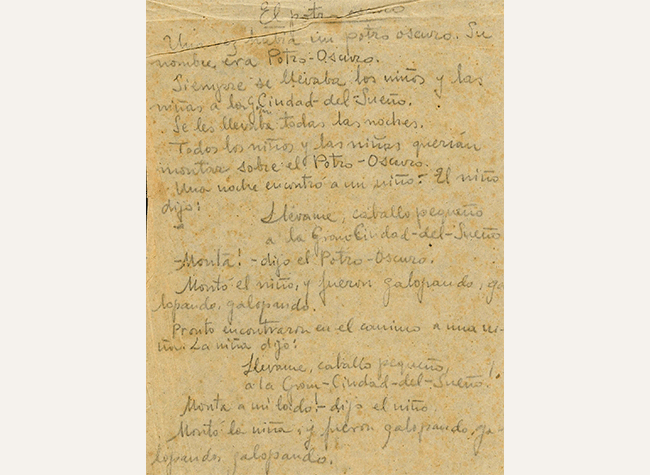 El potro oscuro
Una vez había un potro oscuro. Su
nombre era Potro-Oscuro.
Siempre se llevaba los niños y las
niñas a la Gran Ciudad-del-Sueño.
Se les llevaba todas las noches.
Todos los niños y las niñas querían
montar sobre el Potro-Oscuro.
Una noche encontró a un niño. El niño
dijo:
Llévame, caballo pequeño
a la Gran-Ciudad-del-Sueño
-Monta! -dijo el Potro-Oscuro.
Montó el niño, y fueron galopando, ga-
lopando, galopando.
Pronto encontraron en el camino a una ni-
ña. La niña dijo:
Llévame, caballo pequeño,
a la Gran-Ciudad-del-Sueño!
Monta a mi lado! -dijo el niño.
Montó la niña, y fueron galopando, ga-
lopando, galopando.